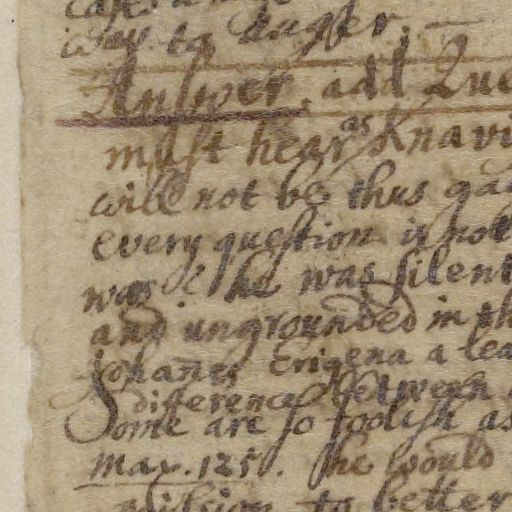 way to anger.
Answer, add Que
must hear as Knavi
will not be thus ga
every question is not
was he was silent
and ungrounded in th
Johanes Erigena a lea
difference between
Some are so foolish as
max. 125. he would
to better